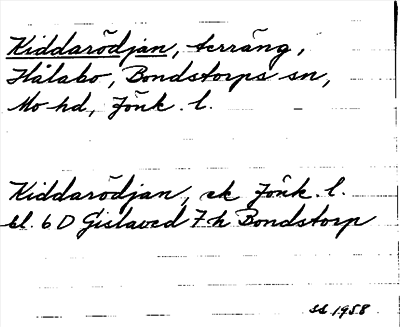 Kiddarödjan, terräng,
Hålabo, Bondstorps sn,
Mo hd, Jönk. l.
Kiddarödjan, ek Jönk. l.
bl. 6 D Gislaved 7 h Bondstorp
1958